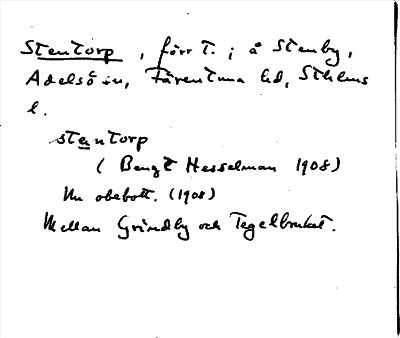 Stentorp, förr t. ; å Stenby,
Adelsö sn, Färentuna hd, Sthlms
l.
stentorp
( Bengt Hesselman 1908)
Nu obebott. (1908)
Mellan Grindby och Tegelbruket.